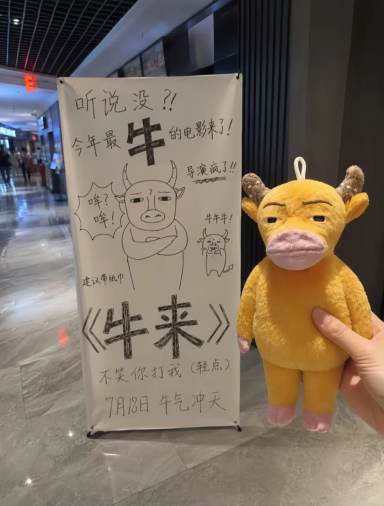 听说没?!
今年最牛的电影来了!
导演疯了!!
哞?
哞!
牛牛牛!
建议带纸巾
《牛来》
不笑你打我(轻点)
7月18日 牛气冲天